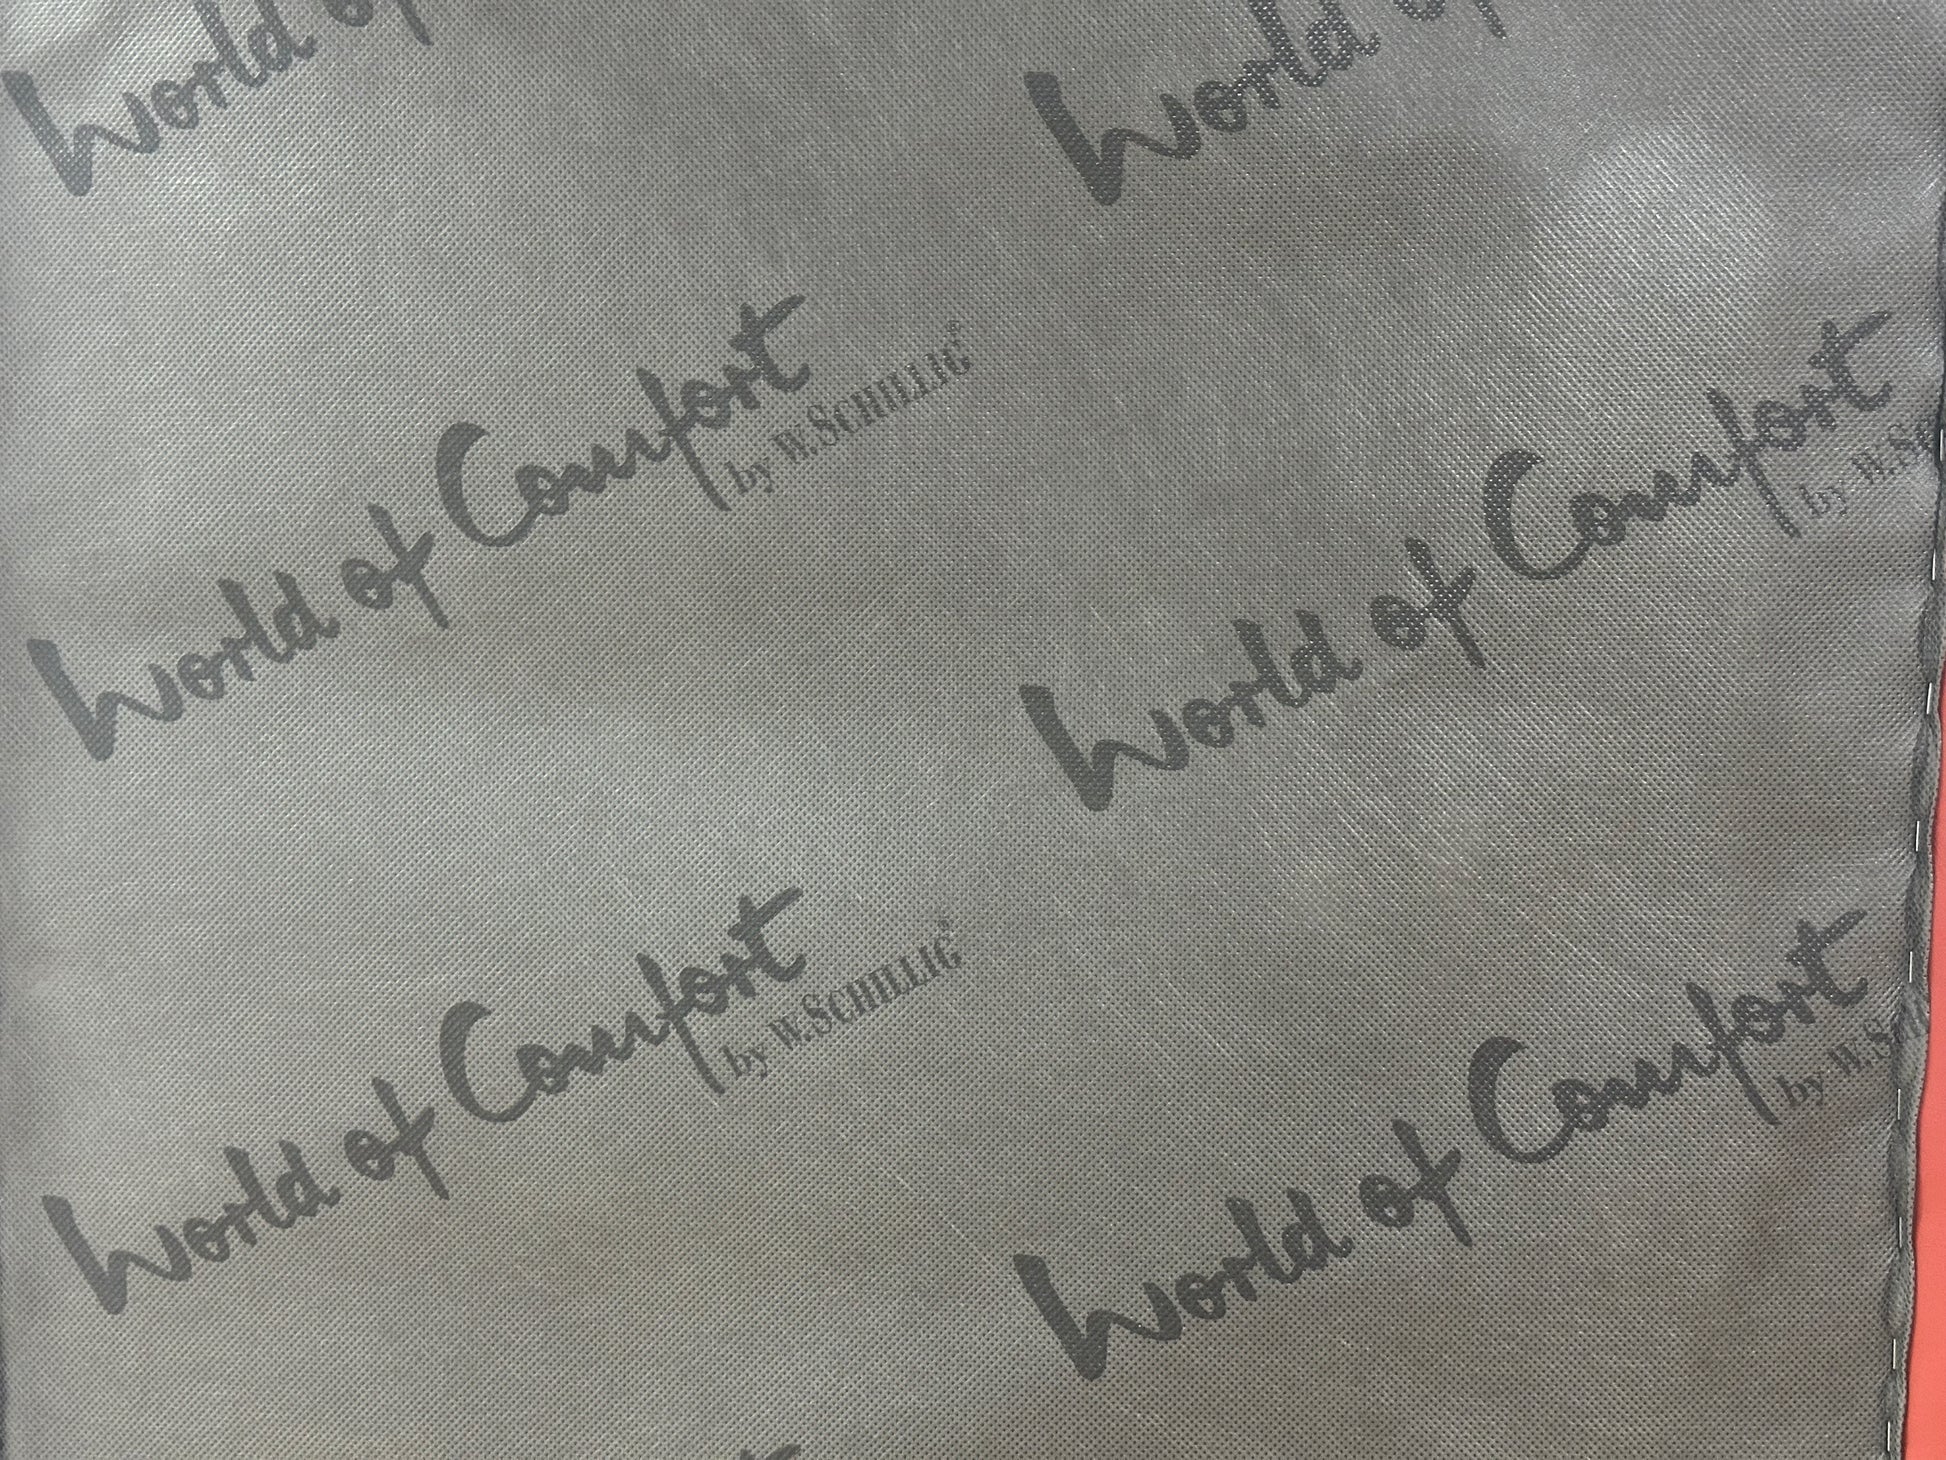 World of
World of
World of Comfort
by W.SCHILLIG®
World of Comfort
by W.Sc
World of Comfort
by W.SCHILLIG®
World of Comfort
by W.Sc